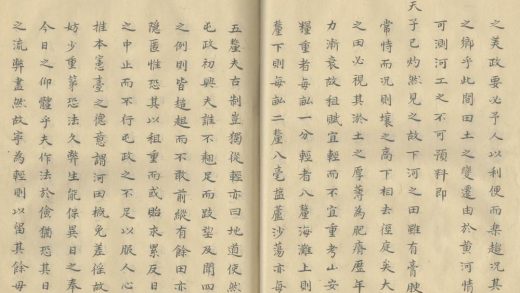 之美政要必予人以利便而樂趨況其
之鄉乎此間田土之變遷由於黃河情
可測河工之不可預料即
天子已灼然見之故下河之田雖有膏腴
常恃而況則壤之高下相去徑庭矣大
之田必視其淤土之厚薄為肥瘠歷年
力漸衰故租賦宜輕而不宜重考山安
糧重者每畝一分輕者八釐海灘上則
釐下則每畝二釐八毫鹽蘆沙蕩亦每
五釐夫古制豈獨從輕亦曰地道使然
屯政初興夫誰不翹足而跂望及聞四
之例則皆趑趄而不敢前縱有餘田亦
隱匿性恐其以租重而或貽衣累反日
之中止而不行屯政之不足以服人心
推本憲臺之德意謂河田概免差徭故
妨少重第恐法久弊生能保異日之奉
今日之仰體乎夫作法於儉猶恐其日
之流弊盡然故寧為輕則以留其餘毋